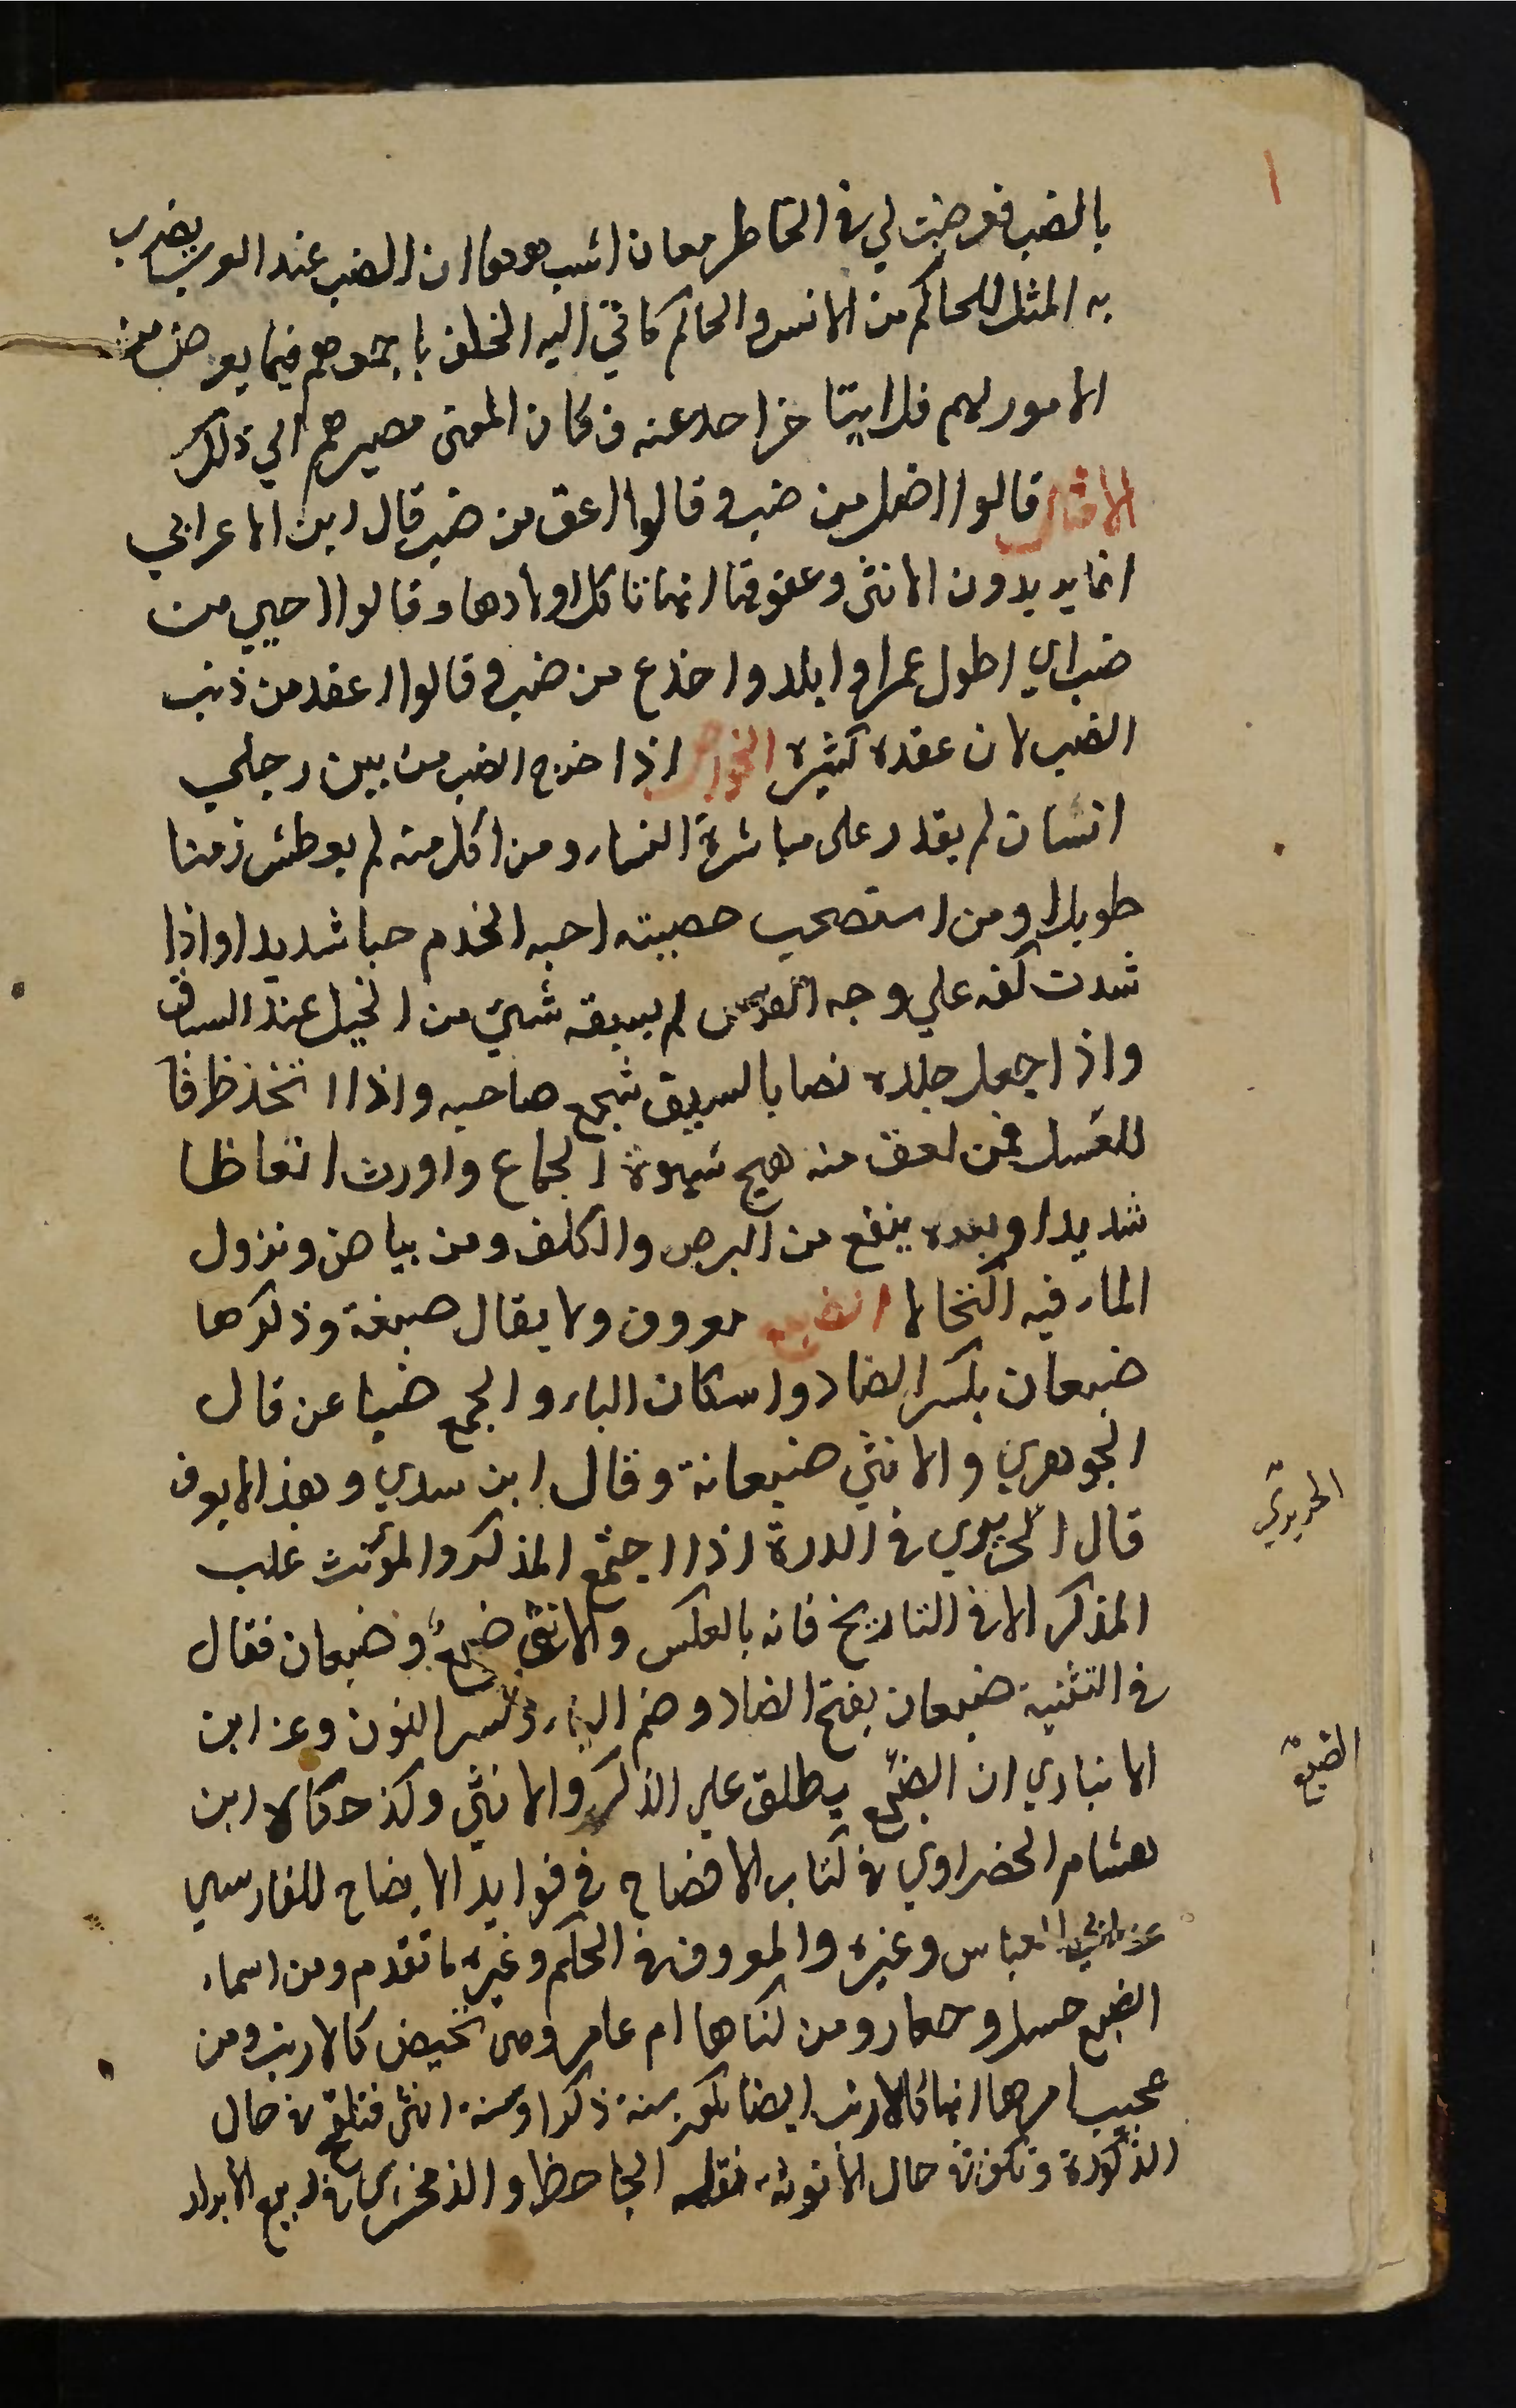 ١
بالضب فعرضت لي في الخاطر معان اشبهها ان الضب عند العرب يضرب
به المثل للحاكم من الانس والحاكم كاتي اليه الخلف باجمعهم فيما يعرض من
الامور لهم فلا يتاخر احد عنه فكان المعنى مصيرهم الي ذلك
الامثال قالوا اضل من ضب وقالوا اعق من ضب قال ابن الاعرابي
انما يريدون الانثى وعقوقها انها تاكل اولادها وقالوا احيي من
ضب اي اطول عمرا وابلد واخدع من ضب وقالوا اعقد من ذنب
الضب لان عقده كثيرة الخواص اذا خرج الضب من بين رجلي
انسان لم يقدر على مباشرة النساء ومن اكل منه لم يعطش زمنا
طويلا ومن استصحب خصيته احبه الخدم حبا شديدا واذا
شدت كفه علي وجه الفرس لم يسبقه شيئ من الخيل عند السباق
واذا جعل جلده نصابا لسيف شجع صاحبه واذا اتخذ ظرفا
للعسل فمن لعق منه هيج شهوة الجماع واورث انعاظا
شديدا وبعره ينفع من البرص والكلف ومن بياض ونزول
الماء فيه اكتحالا الضبع معروف ولا يقال ضبعة وذكرها
ضبعان بكسر الضاد واسكان الباء والجمع ضباعن قال
الجوهري والانثي ضبعانة وقال ابن سدي وهذا لايعرف
قال الحريري في الدرة اذا اجتمع المذكر والمؤنث غلب
المذكر الا في التاريخ فانه بالعكس والانثى ضبع وضبعان فقال
في التثنية ضبعان بفتح الضاد وضم الباء وكسر النون وعن ابن
الانباري ان الضبع يطلق علي الذكر والانثي وكذ حكاه ابن
هشام الخضراوي في كتاب الافصاح في فوايد الايضاح للفارسي
عن ابي العباس وغيره والمعروف في المحكم وغيره ما تقدم ومن اسماء
الضبع حسل وجعار ومن كناها ام عامر وهي تحيض كالارنب ومن
عجيب امرها انها كالارنب ايضا تكون سنة ذكرا وسنة انثى فتلقح في حال
الذكورة وتكون في حال الانوثة نقله الجاحظ والزمخشري في ربيع الابرار
الحريري
الضبع